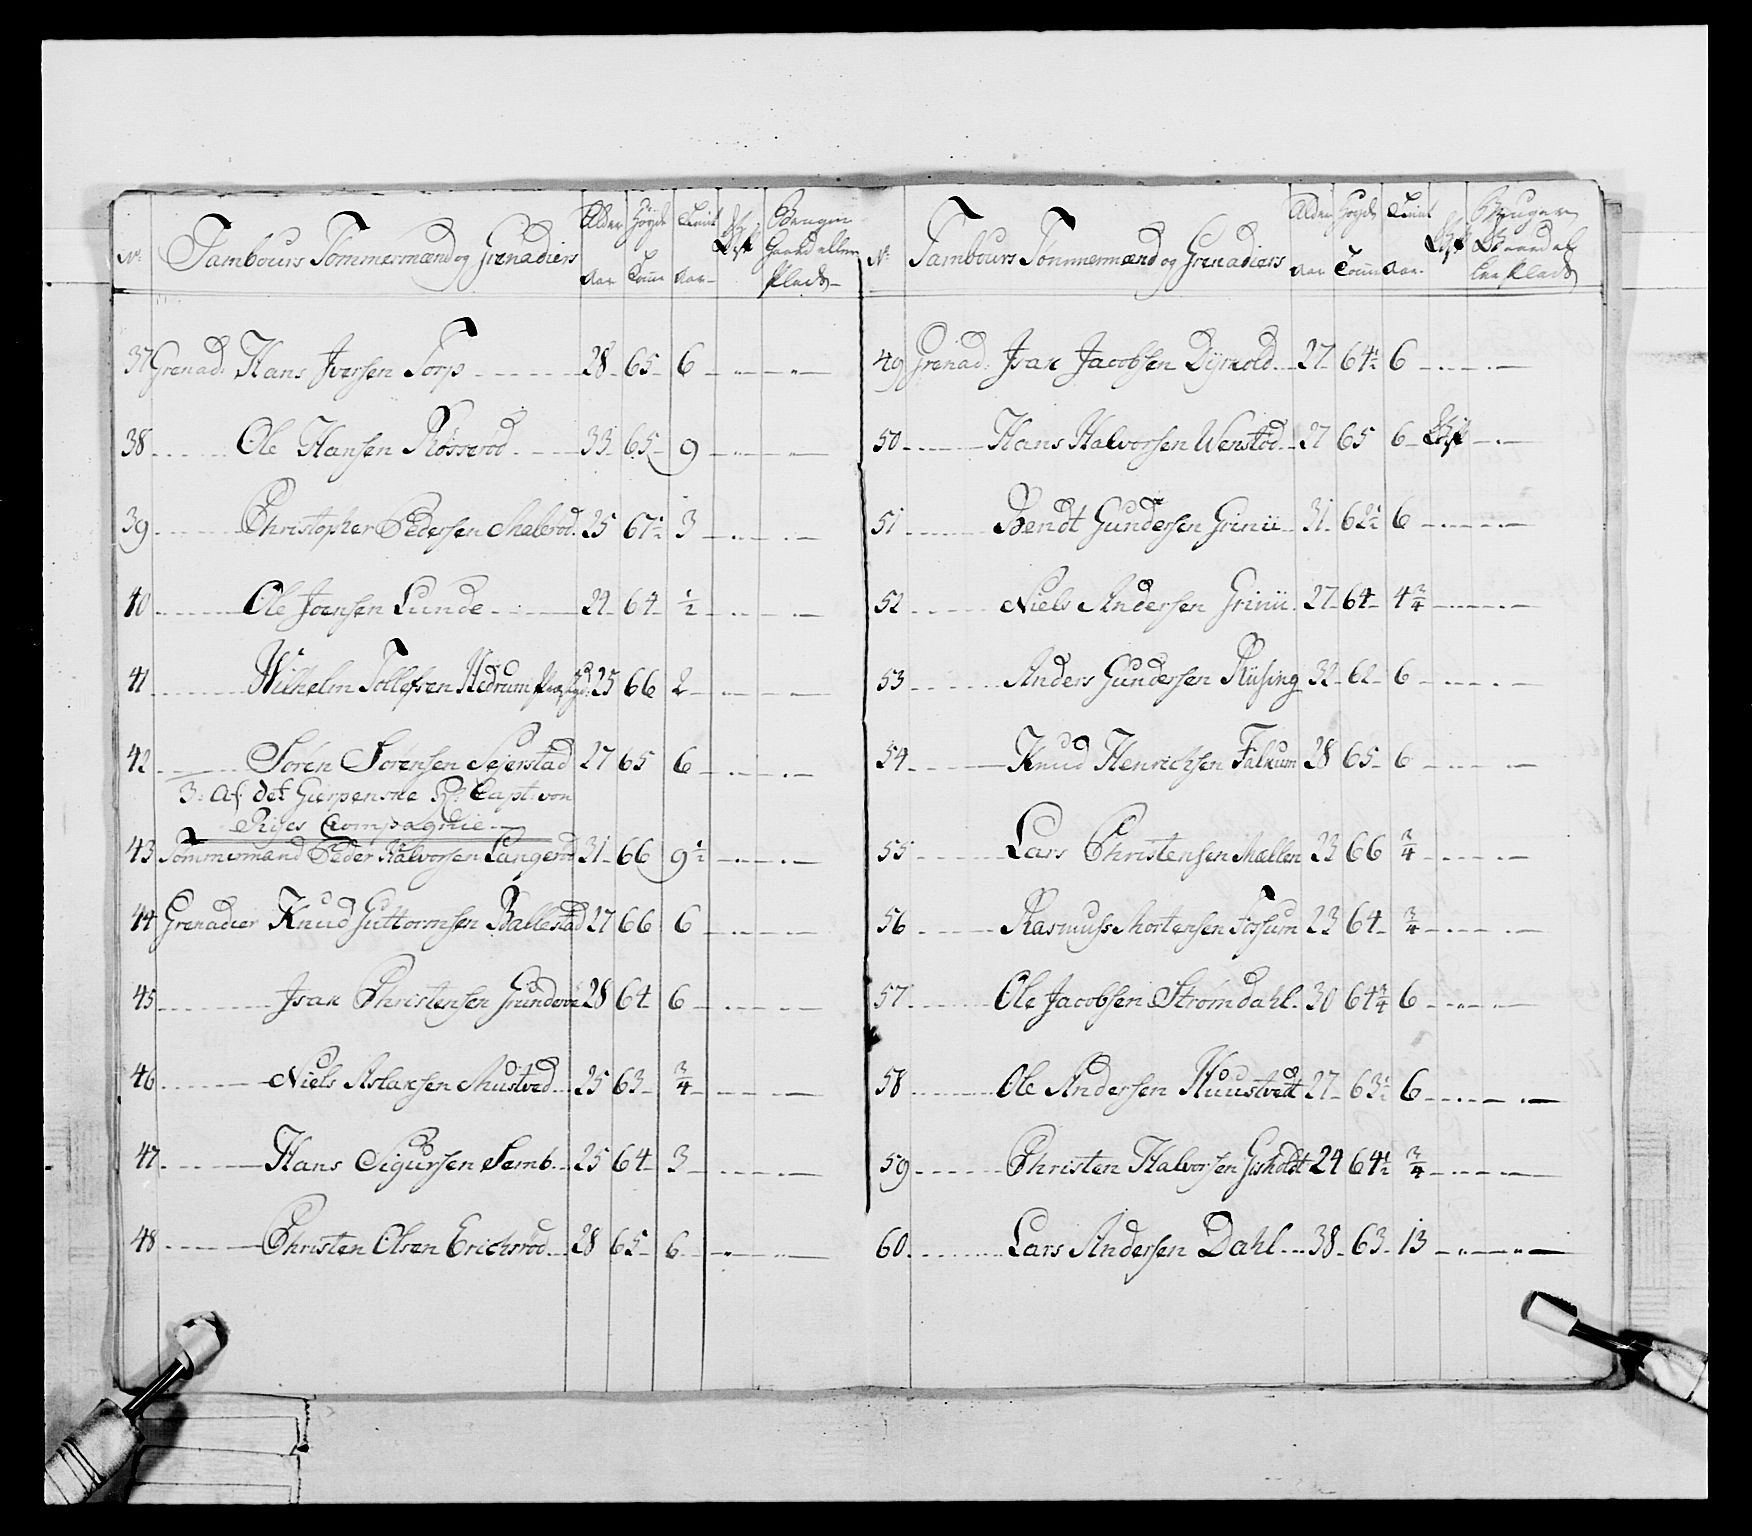 No. Tambours Tømmermænd og Grenadiers Alder Aar Høyde Tomme Tient Aar Gift Bruger Gaard eller Plads
37 Grenad: Hans Iversen Torp 28 65 6
38 Ole Hansen Røsserød 33 65 9
39 Christopher Pedersen Malerød 25 67½ 3
40 Ole Joensen Lunde 24 64 ½
41 Wilhelm Tollefsen Hedrum 25 66 2
42 Søren Sørensen Seierstad 27 65 6
3: Af det Gierpenske Capt: von
Compagnie
43 Tømmermand Peder Halvorsen Langerød 31 66 9½
44 Grenadier Knud Guttormsen Ballestad 27 66 6
45 Isak Christensen 28 64 6
46 Niels Aslaksen Mustved 25 63 ¾
47 Hans Sigursen Semb 25 64 3
48 Christen Olsen Erichsrød 28 65 6
No. Tambours Tømmermænd og Grenadiers Alder Aar Høyde Tomme Tient Aar Gift Bruger Gaard eller Plads
49 Grenad: Isak Jacobsen 27 64½ 6
50 Hans Halvorsen Wenstød 27 65 6 Gift
51 Bendt Gundersen Grinii 31 62½ 6
52 Niels Andersen Grinii 27 64 4¾
53 Anders Gundersen Riising 32 62 6
54 Knud Henrichsen Falkum 28 65 6
55 Lars Christensen Mællen 23 66 ¾
56 Rasmuss Mortensen Fossum 23 64 ¾
57 Ole Jacobsen Strømdahl 30 64¾ 6
58 Ole Andersen Huustvedt 27 63½ 6
59 Christen Halvorsen Gisholdt 24 64½ ¾
60 Lars Andersen Dahl 38 63 13